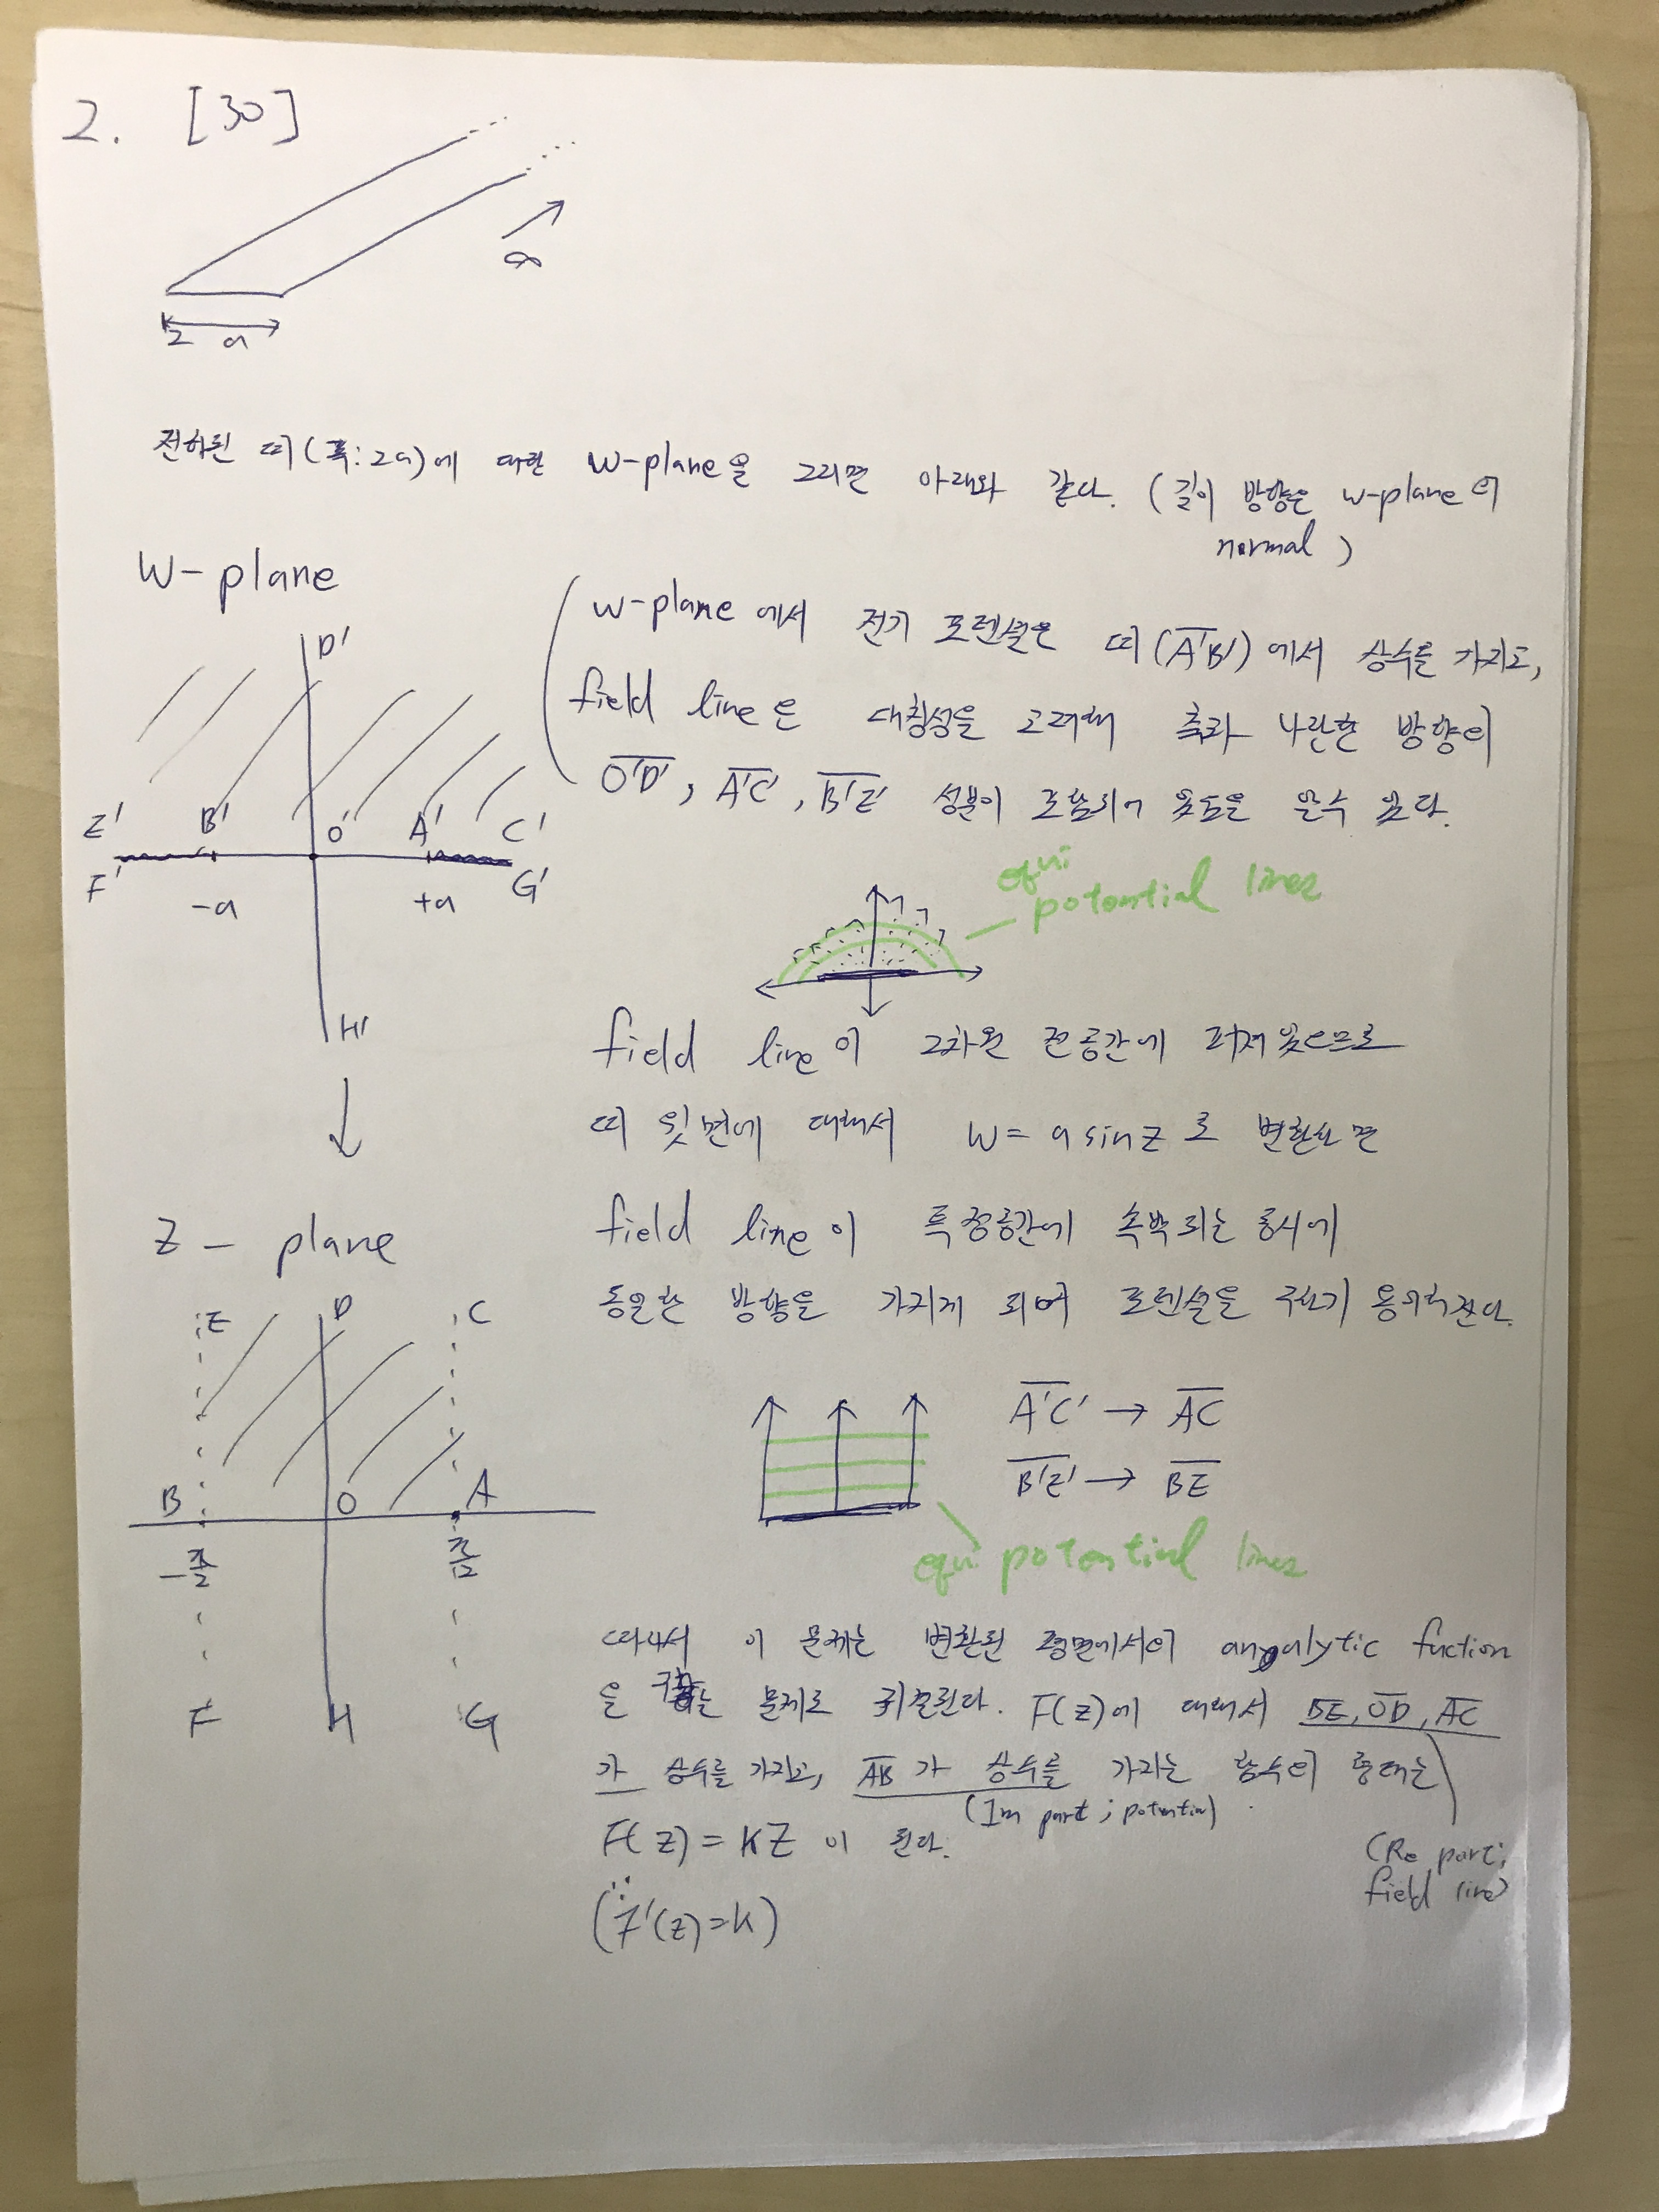 2. [30]
∞
2 a
전하된 띠(폭:2a)에 대한 W-plane을 그리면 아래와 같다. (길이 방향은 w-plane의
normal)
W-plane
D'
E' B' O' A' C'
F' -a +a G'
H'
w-plane 에서 전기 포텐셜은 띠(A'B')에서 상수를 가지고,
field line은 대칭성을 고려해 축과 나란한 방향의
O'D', A'C', B'E' 성분이 포함되어 있음을 알수 있다.
equi
potential lines
field line이 2차원 전공간에 퍼져있으므로
띠 윗면에 대해서 W = a sin z 로 변환하면
field line이 특정공간에 속박되는 동시에
동일한 방향을 가지게 되어 포텐셜을 구하기 용이해진다.
Z - plane
E D C
B O A
-π/2 π/2
F H G
A'C' → AC
B'E' → BE
equi potential lines
따라서 이 문제는 변환된 평면에서의 anyalytic fuction
을 구하는 문제로 귀결된다. F(z)에 대해서 BE, OD, AC
가 상수를 가지고, AB가 상수를 가지는 함수의 형태는
(Im part ; potential)
F(z) = KZ 이 된다.
(Re part;
field line)
(∵ F'(z)=K)